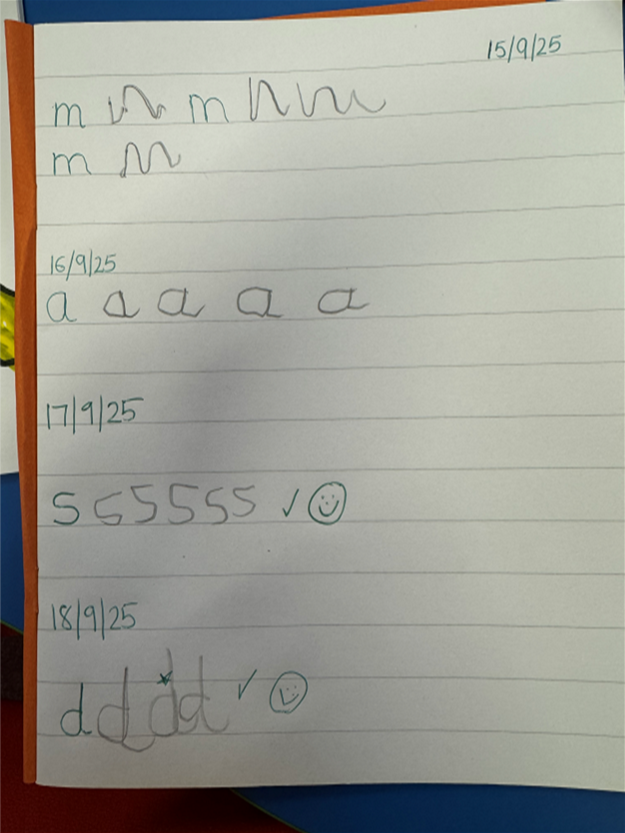 15/9/25
m m m m m
m m
16/9/25
a a a a a
17/9/25
s s s s s s ✓
18/9/25
d d d d ✓